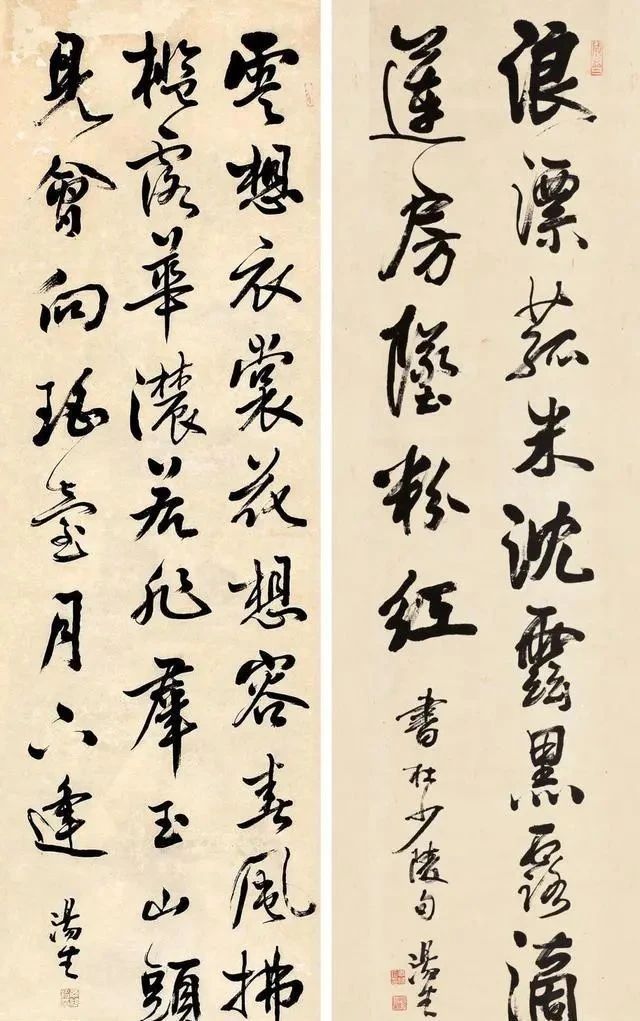 浪漂菰米沈雲黑露滴
蓮房墜粉紅
書杜少陵句 湯生
雲想衣裳花想容春風拂
檻露華濃若非羣玉山頭
見會向瑤臺月下逢
湯生